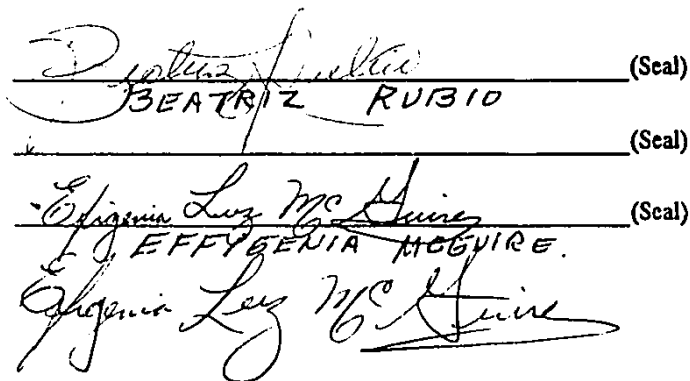 Beatriz Rubio (Seal)
BEATRIZ RUBIO
(Seal)
Efigenia Luz McGuire (Seal)
EFFYGENIA MCGUIRE.
Efigenia Luz McGuire